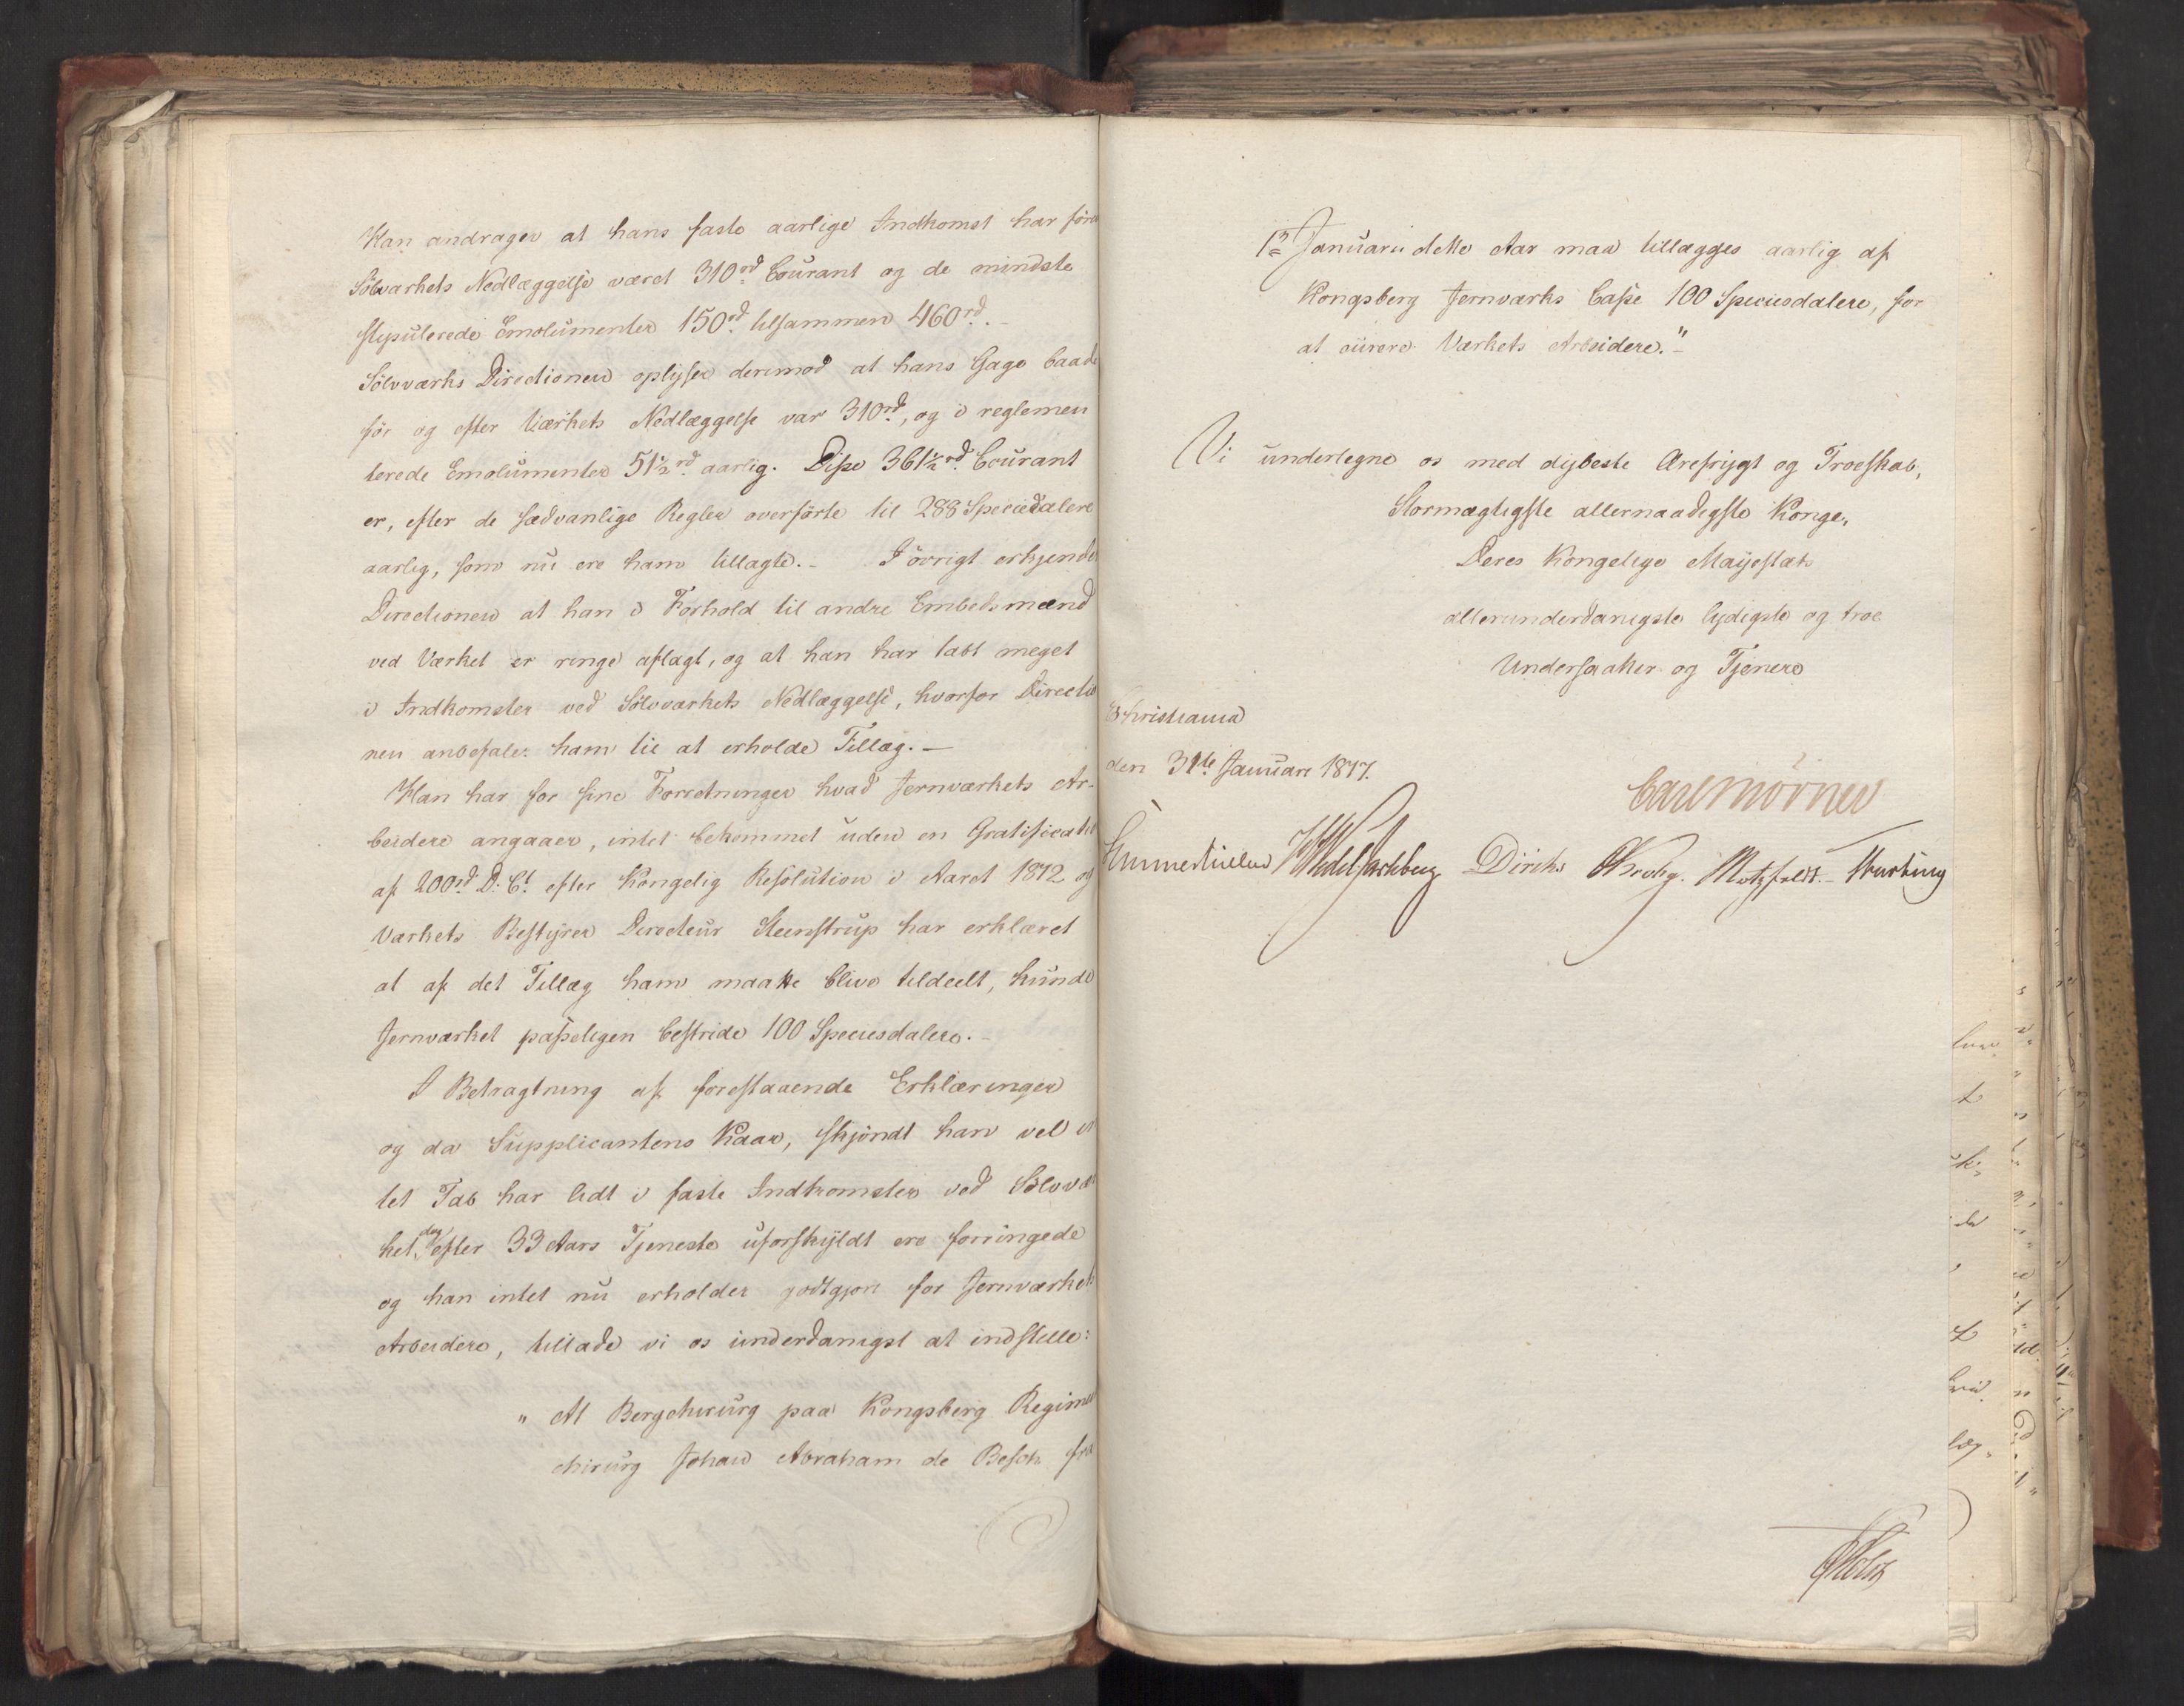 Han andrager at hans faste aarlige Indkomst har före
Sölvværkets Nedlæggelse været 310rd Courant og de mindste
stipulerede Emolumenter 150rd tilsammen 460rd.-
Sölvværks Directionen oplyser derimod at hans Gage baade
för og efter Værkets Nedlæggelse var 310rd, og i reglemen
terede Emolumenter 51½rd aarlig. Disse 361½rd Courant
er, efter de sædvanlige Regler overförte til 288 Speciedalere
aarlig, som nu ere ham tillagte.- I övrigt erkjender
Directionen at han i Forhold til andre Embedsmænd
ved Værket er ringe aflagt, og at han har tabt meget
i Indkomster ved Sölvværkets Nedlæggelse, hvorfor Directio
nen anbefaler ham til at erholde Tillæg.-
Han har for sine Forretninger hvad Jernværkets Ar-
beidere angaaer, intet bekommet uden en Gratification
af 200rd D: Ct efter Kongelig Resolution i Aaret 1812 og
Værkets Bestyrer Directeur Steenstrup har erklæret
at af det Tillæg ham maatte blive tildeelt, kunde
Jernværket passeligen bestride 100 Speciesdalere.-
I Betragtning af forestaaende Erklæringer
og da Supplicantens Kaar, skjöndt han vel in
tet Tab har lidt i faste Indkomster ved Sölvvær
ket, dog efter 33 Aars Tjeneste uforskyldt ere forringede
og han intet nu erholder godtgjort for Jernværkets
Arbeidere, tillade vi os underdanigst at indstille:
" At Bergchirurg paa Kongsberg Regiments
chirurg Johan Abraham de Besche fra
1ste Januarii dette Aar maa tillægges aarlig af
Kongsberg Jernværks Casse 100 Speciesdalere, for
at curere Værkets Arbeidere."-
Vi underlegne os med dybeste Ærefrygt og Troeskab,
Stormægtigste allernaadigste Konge,
Deres Kongelige Majestæts
allerunderdanigste lydigste og troe
Undersaatter og Tjenere
Christiania
den 31te Januari 1817.
Carl Mörner
Sommerhielm HWedel Jarlsberg Diriks CKrohg. Motzfeldt.- Thurting
Holst